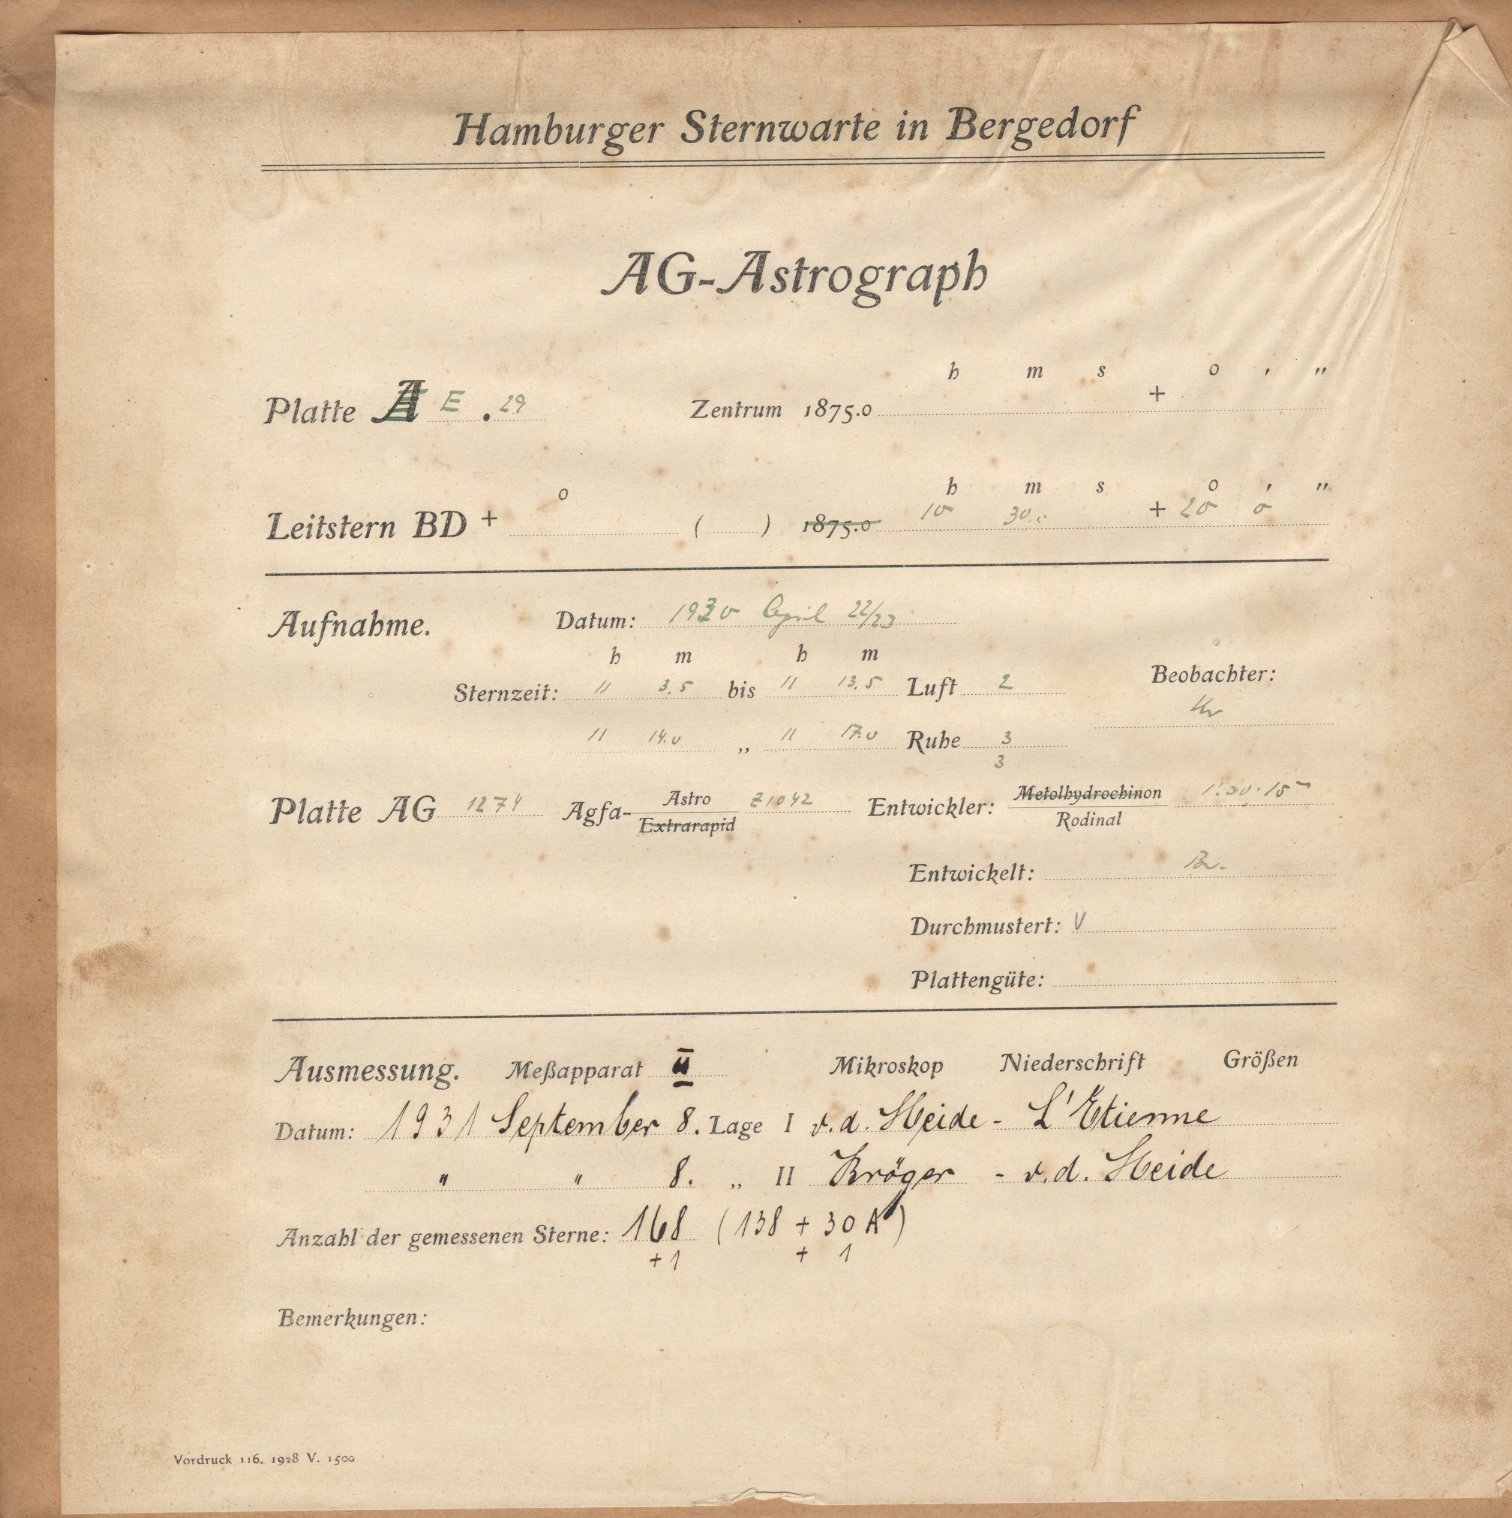 Hamburger Sternwarte in Bergedorf
AG-Astrograph
h m s o ' "
Platte A E . 29 Zentrum 1875.0 +
o h m s o ' "
Leitstern BD + ( ) 1875.0 10 30 + 20 0
Aufnahme. Datum: 1930 April 22/23
h m h m
Sternzeit: 11 3.5 bis 11 13.5 Luft 2 Beobachter:
11 14.0 „ 11 17.0 Ruhe 3
3
Platte AG 1274 Agfa- Astro Extrarapid Z1042 Entwickler: Metolhydrochinon Rodinal
Entwickelt:
Durchmustert: V
Plattengüte:
Ausmessung. Meßapparat II Mikroskop Niederschrift Größen
Datum: 1931 September 8. Lage I v.d. Heide - L'Etienne
" " 8. „ II Kröger - v.d. Heide
Anzahl der gemessenen Sterne: 168 (138 + 30 A)
+1 + 1
Bemerkungen:
Vordruck 116. 1928 V. 1500